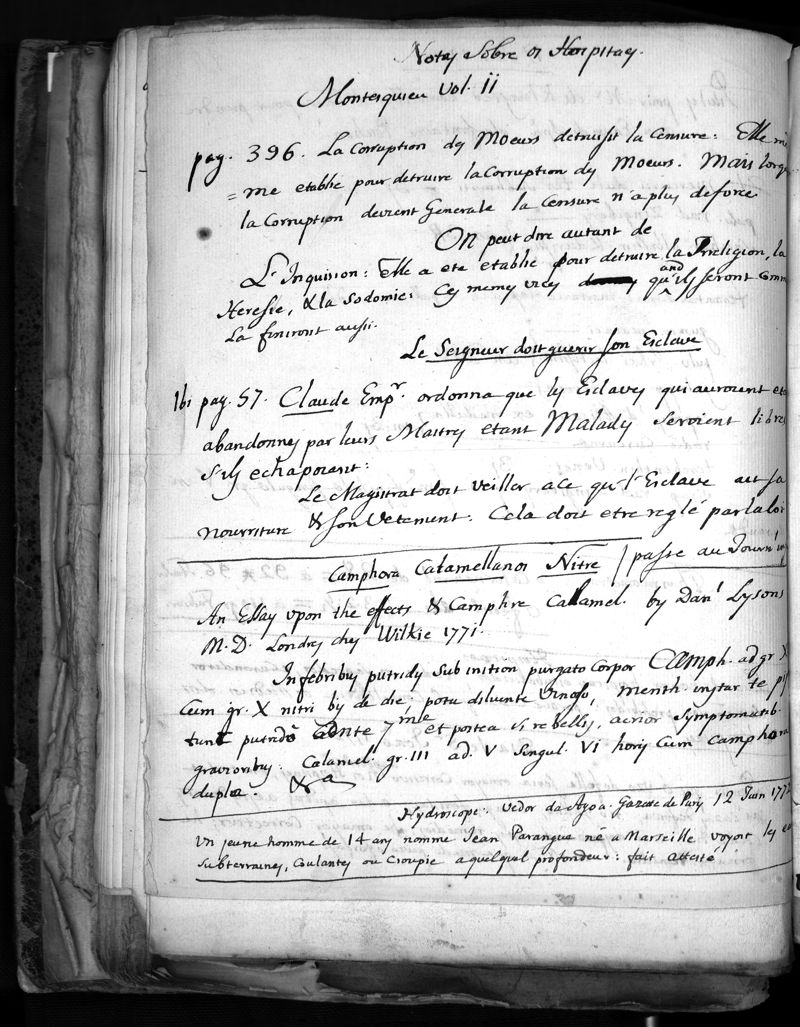 Notas Sobre os Hospitaes.
Montesquieu Vol. II
pag. 396. La Corruption des Moeurs detruisit la Censure: Elle
= me etablie pour detruire la Corruption des Moeurs. Mais lorsq
la Corruption devient Generale la Censure n'a plus de force
On peut dire autant de
L'Inquision: Elle a ete etablie pour detruire la Irreligion, la
Heresie, & la Sodomie: Ces memes vices quand ils seront comm
La finiront aussi.
Le Seigneur doit guerir son Esclave
Ibi pag. 57. Claude Empr. ordonna que les Esclaves qui auroient ete
abandonnes par leurs Maitres etant Malades seroient libres
s'ils echaposent:
Le Magistrat doit veiller a ce qu l'Esclave ait sa
nourriture & son Vetement. Cela doit etre reglé par la loi
Camphora Calamellanos Nitre / passe au Journ
An Essay upon the effects & Camphire Calamel. by Danl Lysons
M.D. Londres ches Wilkie 1771.
In febribus putridis sub initium purgato corpor Camph. ad gr
Cum gr. X nitri bis de die, potu diluente Vinoso, menth. instar
putrid ante 7me et postea si rebellis, acrior symptomatib.
gravioribus: Calamel. gr. III ad. V Singul. VI horis Cum Camphora
dupla. &a
Hydroscope. Vedor da Agoa. Gazete de Paris 12 Juin 177
Un jeune homme de 14 ans nomme Jean Parangue né a Marseille voyoit les
Subterraines, Coulantes ou Croupie a quelqual profondeur: fait attesté